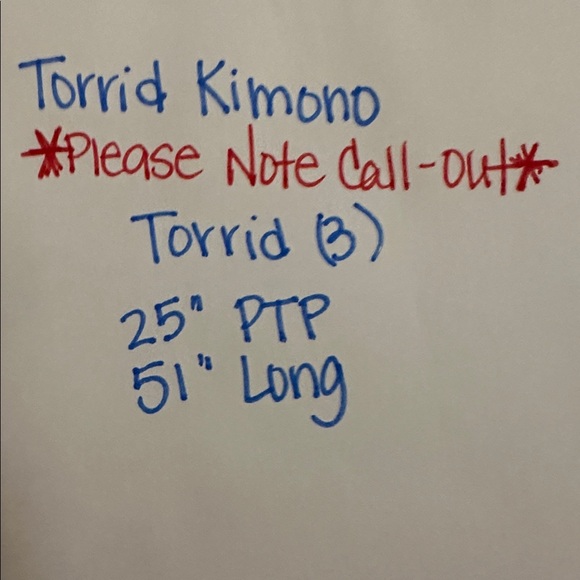 Torrid Kimono
*Please Note Call-out*
Torrid (3)
25" PTP
51" Long